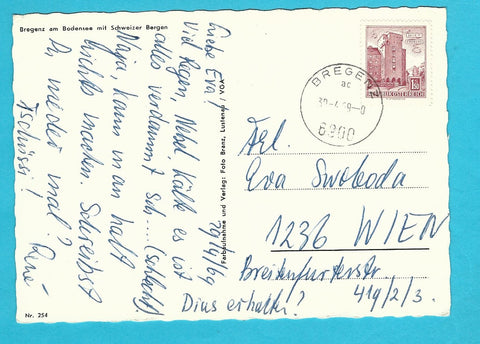 Bregenz am Bodensee mit Schweizer Bergen
29/4/69
Liebe Eva!
Viel Regen, Nebel, Kälte es ist
alles verdammt sch... (schlecht)
Naja, kann man halt
nichts machen. Schreibst
Du wieder mal?
Tschüssi! René
Farbaufnahme und Verlag: Foto Branz, Lustenau / VOA
Nr. 254
BREGENZ
ac
6900
REPUBLIK ÖSTERREICH
Frl.
Eva Swoboda
1236 WIEN
Breitenfurterstr.
419/2/3.
Dias erhalten?